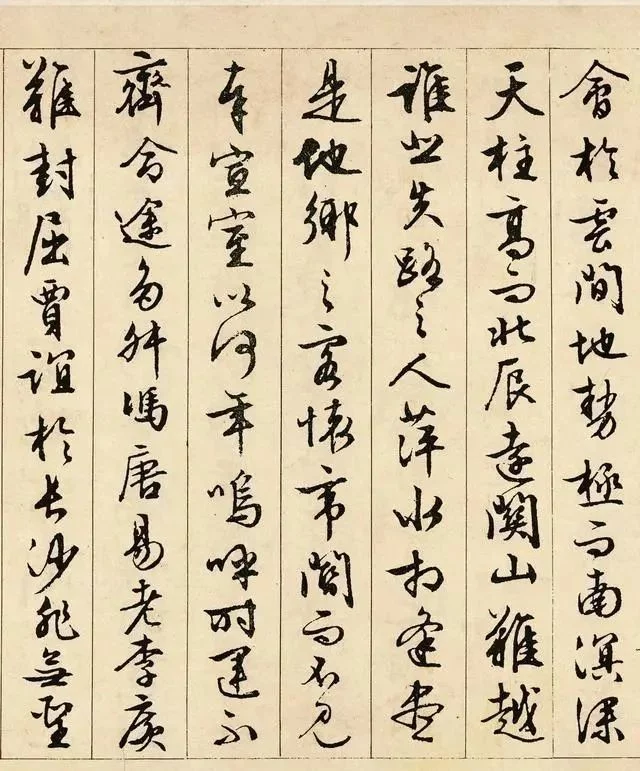 會於雲間地勢極而南溟深
天柱高而北辰遠關山難越
誰悲失路之人萍水相逢盡
是他鄉之客懷帝閽而不見
奉宣室以何年嗚呼時運不
齊命途多舛馮唐易老李廣
難封屈賈誼於長沙非無聖